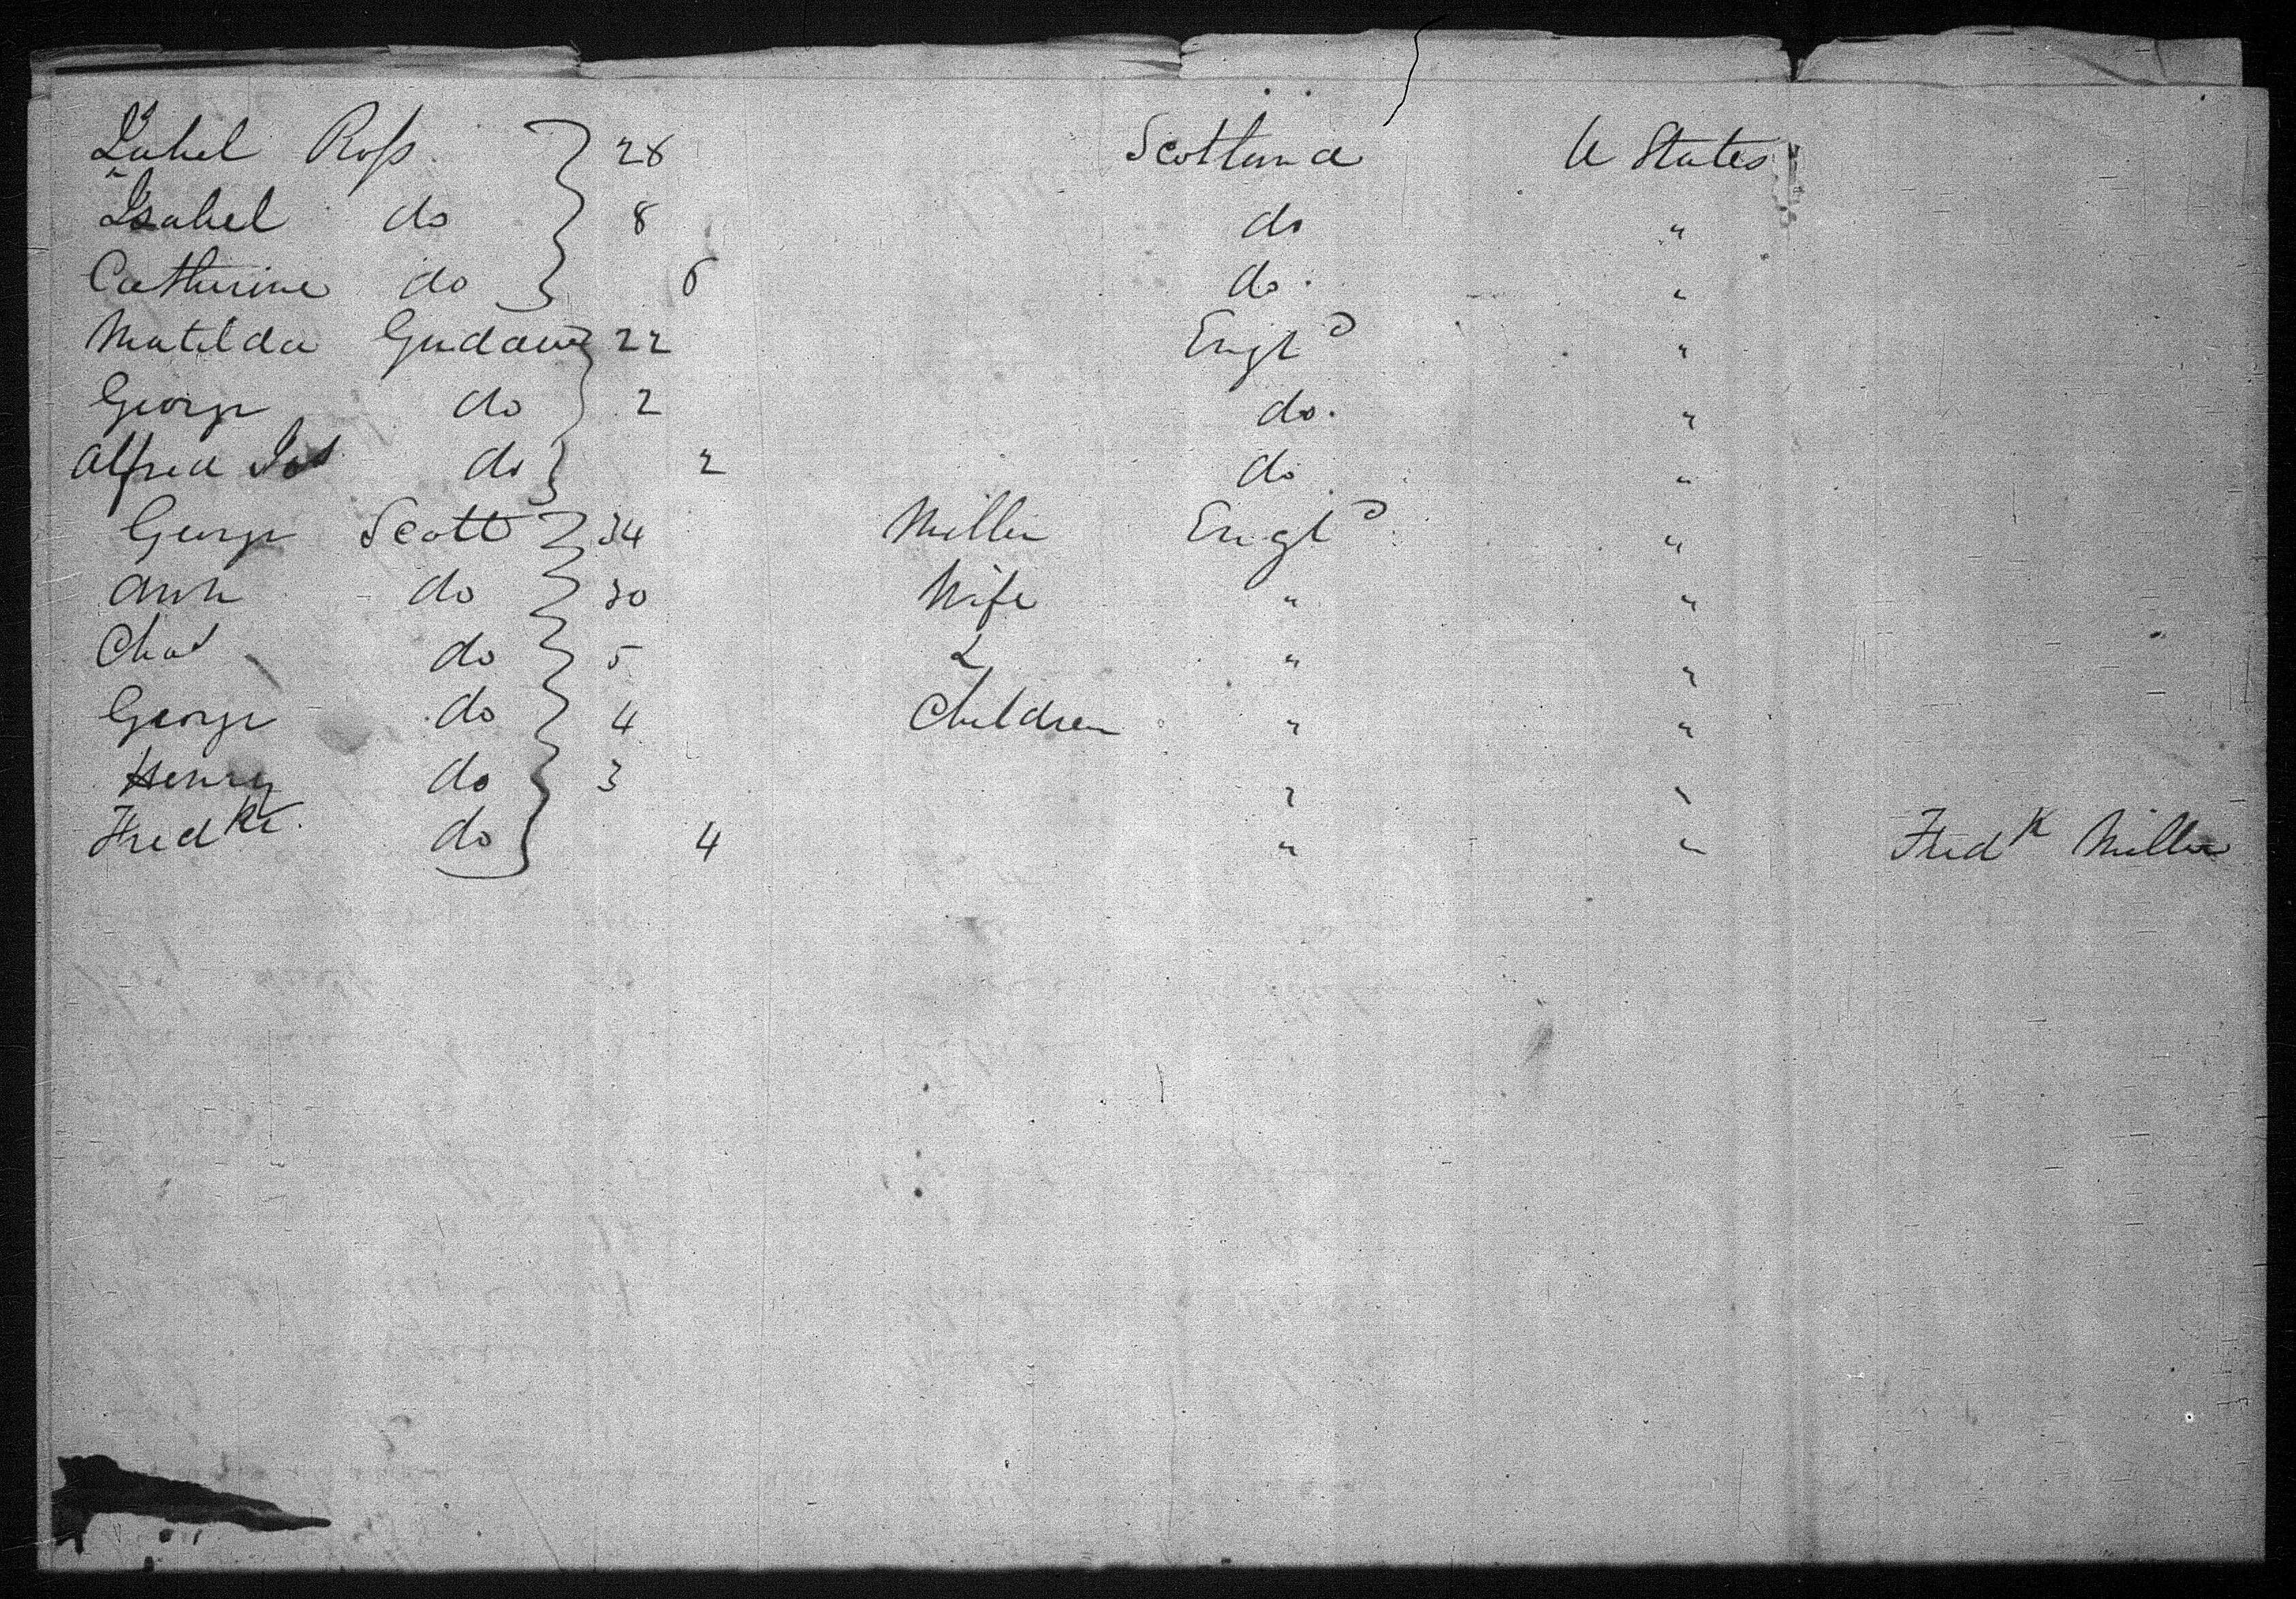 Isabel Ross 28 Scotland U States
Isabel do 8 do "
Catherine do 6 do. "
Matilda 22 Engld "
George do 2 do. "
Alfred Jas do 2 do "
George Scott 34 Miller Engld "
Ann do 30 Wife " "
Chas do 5 & " "
George do 4 Children " "
Henry do 3 " "
Fredke. do 4 " " Fredk Miller